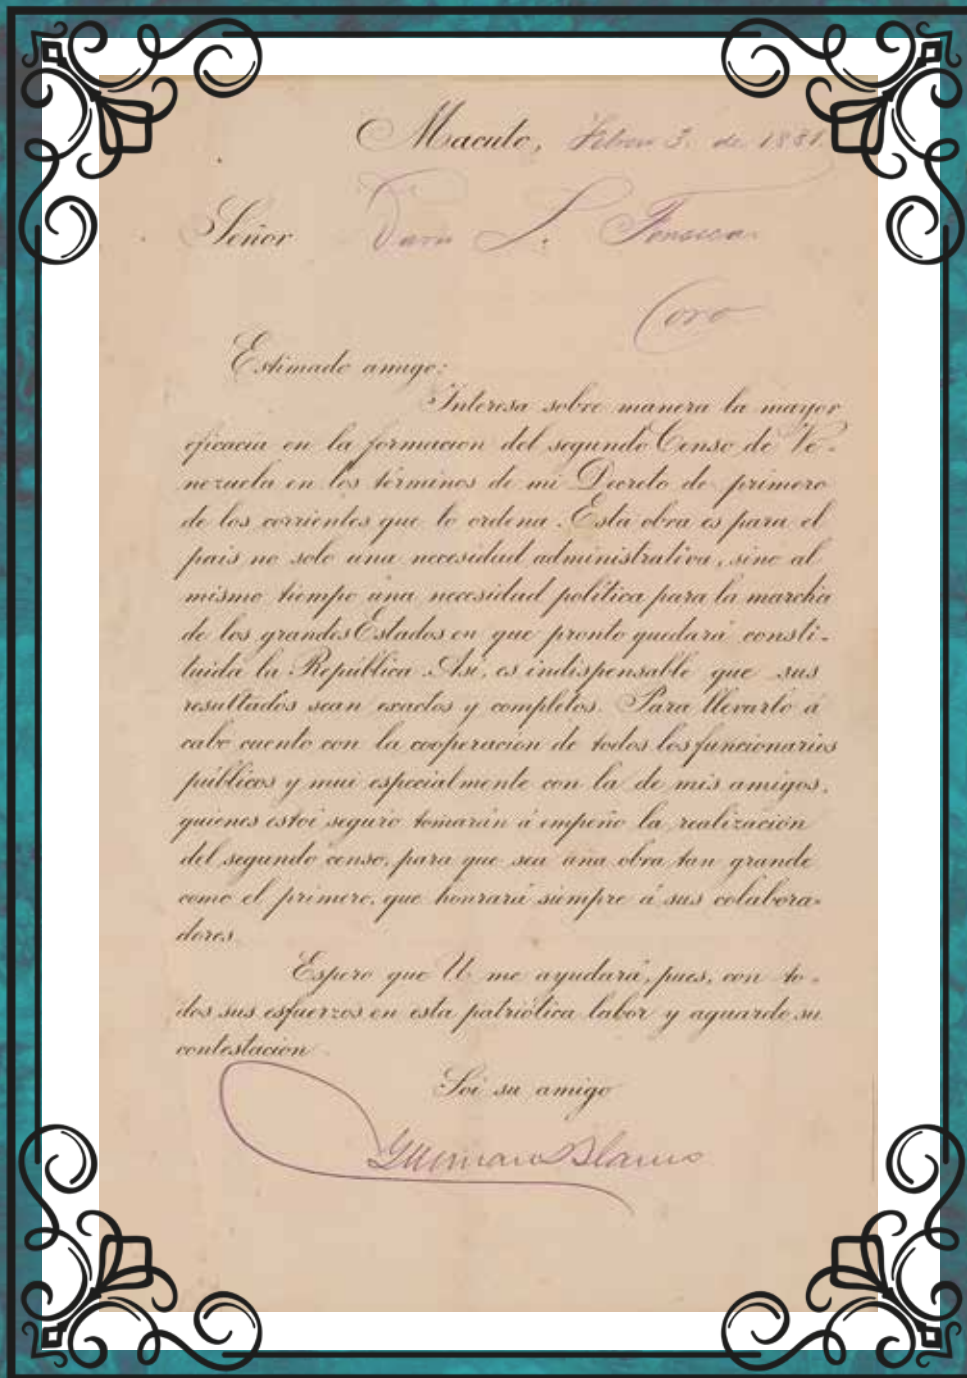 Macuto, Febro 3. de 1881.
Señor L. Fonseca
Coro
Estimado amigo:
Interesa sobre manera la mayor
eficacia en la formacion del segundo Censo de Ve-
nezuela en los términos de mi Decreto de primero
de los corrientes que lo ordena. Esta obra es para el
pais no solo una necesidad administrativa, sino al
mismo tiempo una necesidad política para la marcha
de los grandes Estados en que pronto quedará consti-
tuida la República. Así, es indispensable que sus
resultados sean exactos y completos. Para llevarlo á
cabo cuento con la cooperacion de todos los funcionarios
públicos y mui especialmente con la de mis amigos,
quienes estoi seguro tomarán á empeño la realizacion
del segundo censo, para que sea una obra tan grande
como el primero, que honrará siempre á sus colabora-
dores.
Espero que U. me ayudará, pues, con to-
dos sus esfuerzos en esta patriótica labor y aguardo su
contestacion.
Soi su amigo
Guzman Blanco